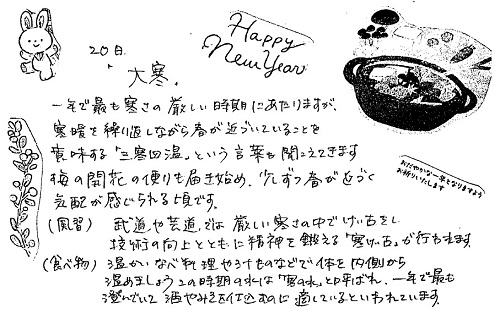 Happy
New Year
20日
大寒
一年で最も寒さの厳しい時期にあたりますが、
寒暖を繰り返しながら春が近づいていることを
意味する「三寒四温」という言葉も聞こえてきます
梅の開花の便りも届き始め、少しずつ春が近づく
気配が感じられる頃です。
(風習) 武道や芸道では厳しい寒さの中でけい古をし
技術の向上とともに精神を鍛える「寒げい古」が行われます。
(食べ物) 温かいなべ料理や汁ものなどで体を内側から
温めましょう この時期の水は「寒の水」と呼ばれ、一年で最も
澄んでいて酒やみそを仕込むのに適しているといわれています。
おだやかな一年となりますよう
お祈りいたします